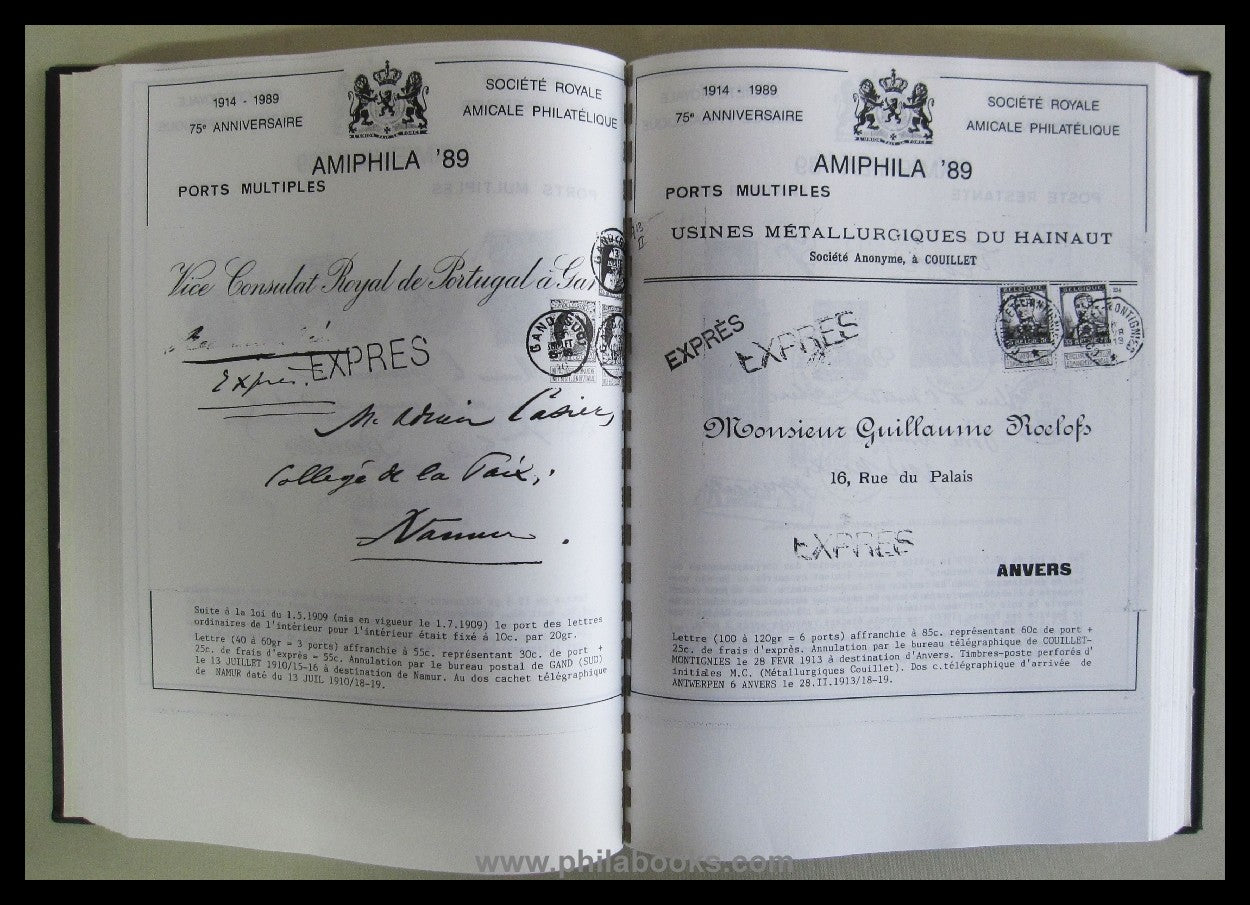 1914 - 1989
75e ANNIVERSAIRE
SOCIÉTÉ ROYALE
AMICALE PHILATÉLIQUE
L'UNION FAIT LA FORCE
AMIPHILA '89
PORTS MULTIPLES
Vice Consulat Royal de Portugal à Gan
EXPRES
Exprès
GAND (SUD)
M. Adrien Casier,
Collège de la Paix,
Namur.
Suite à la loi du 1.5.1909 (mis en vigueur le 1.7.1909) le port des lettres
ordinaires de l'intérieur pour l'intérieur était fixé à 10c. par 20gr.
Lettre (40 à 60gr = 3 ports) affranchie à 55c. représentant 30c. de port +
25c. de frais d'exprès = 55c. Annulation par le bureau postal de GAND (SUD)
le 13 JUILLET 1910/15-16 à destination de Namur. Au dos cachet télégraphique
de NAMUR daté du 13 JUIL 1910/18-19.
1914 - 1989
75e ANNIVERSAIRE
SOCIÉTÉ ROYALE
AMICALE PHILATÉLIQUE
L'UNION FAIT LA FORCE
AMIPHILA '89
PORTS MULTIPLES
USINES MÉTALLURGIQUES DU HAINAUT
Société Anonyme, à COUILLET
BELGIQUE BELGIQUE
EXPRÈS EXPRES
Monsieur Guillaume Roelofs
16, Rue du Palais
EXPRES
ANVERS
Lettre (100 à 120gr = 6 ports) affranchie à 85c. représentant 60c de port +
25c. de frais d'exprès. Annulation par le bureau télégraphique de COUILLET-
MONTIGNIES le 28 FEVR 1913 à destination d'Anvers. Timbres-poste perforés d'
initiales M.C. (Métallurgiques Couillet). Dos c.télégraphique d'arrivée de
ANTWERPEN 6 ANVERS le 28.II.1913/18-19.
www.philabooks.com